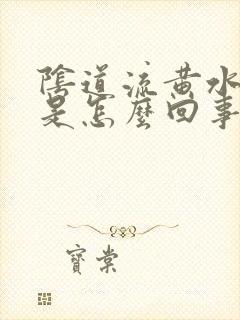 陰道流黃水
是怎麼回事
寶棠